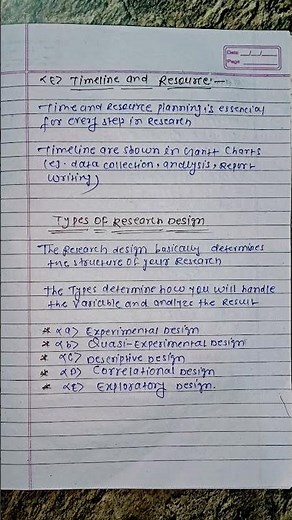 Date / /
Page
<E> Timeline and Resource:-
Time and Resource planning is essencial
for every step in Research
Timeline are shown in Gantt Charts
(eg. data collection, analysis, Report
writing)
Types Of Research Design
The Research design basically determines
the structure of your Research
the Types determine how you will handle
the variable and analyze the Result
* <a> Experimental Design
* <b> Quasi-Experimental Design
* <C> Descriptive Design
* <D> Correlational Design
* <E> Exploratory Design.